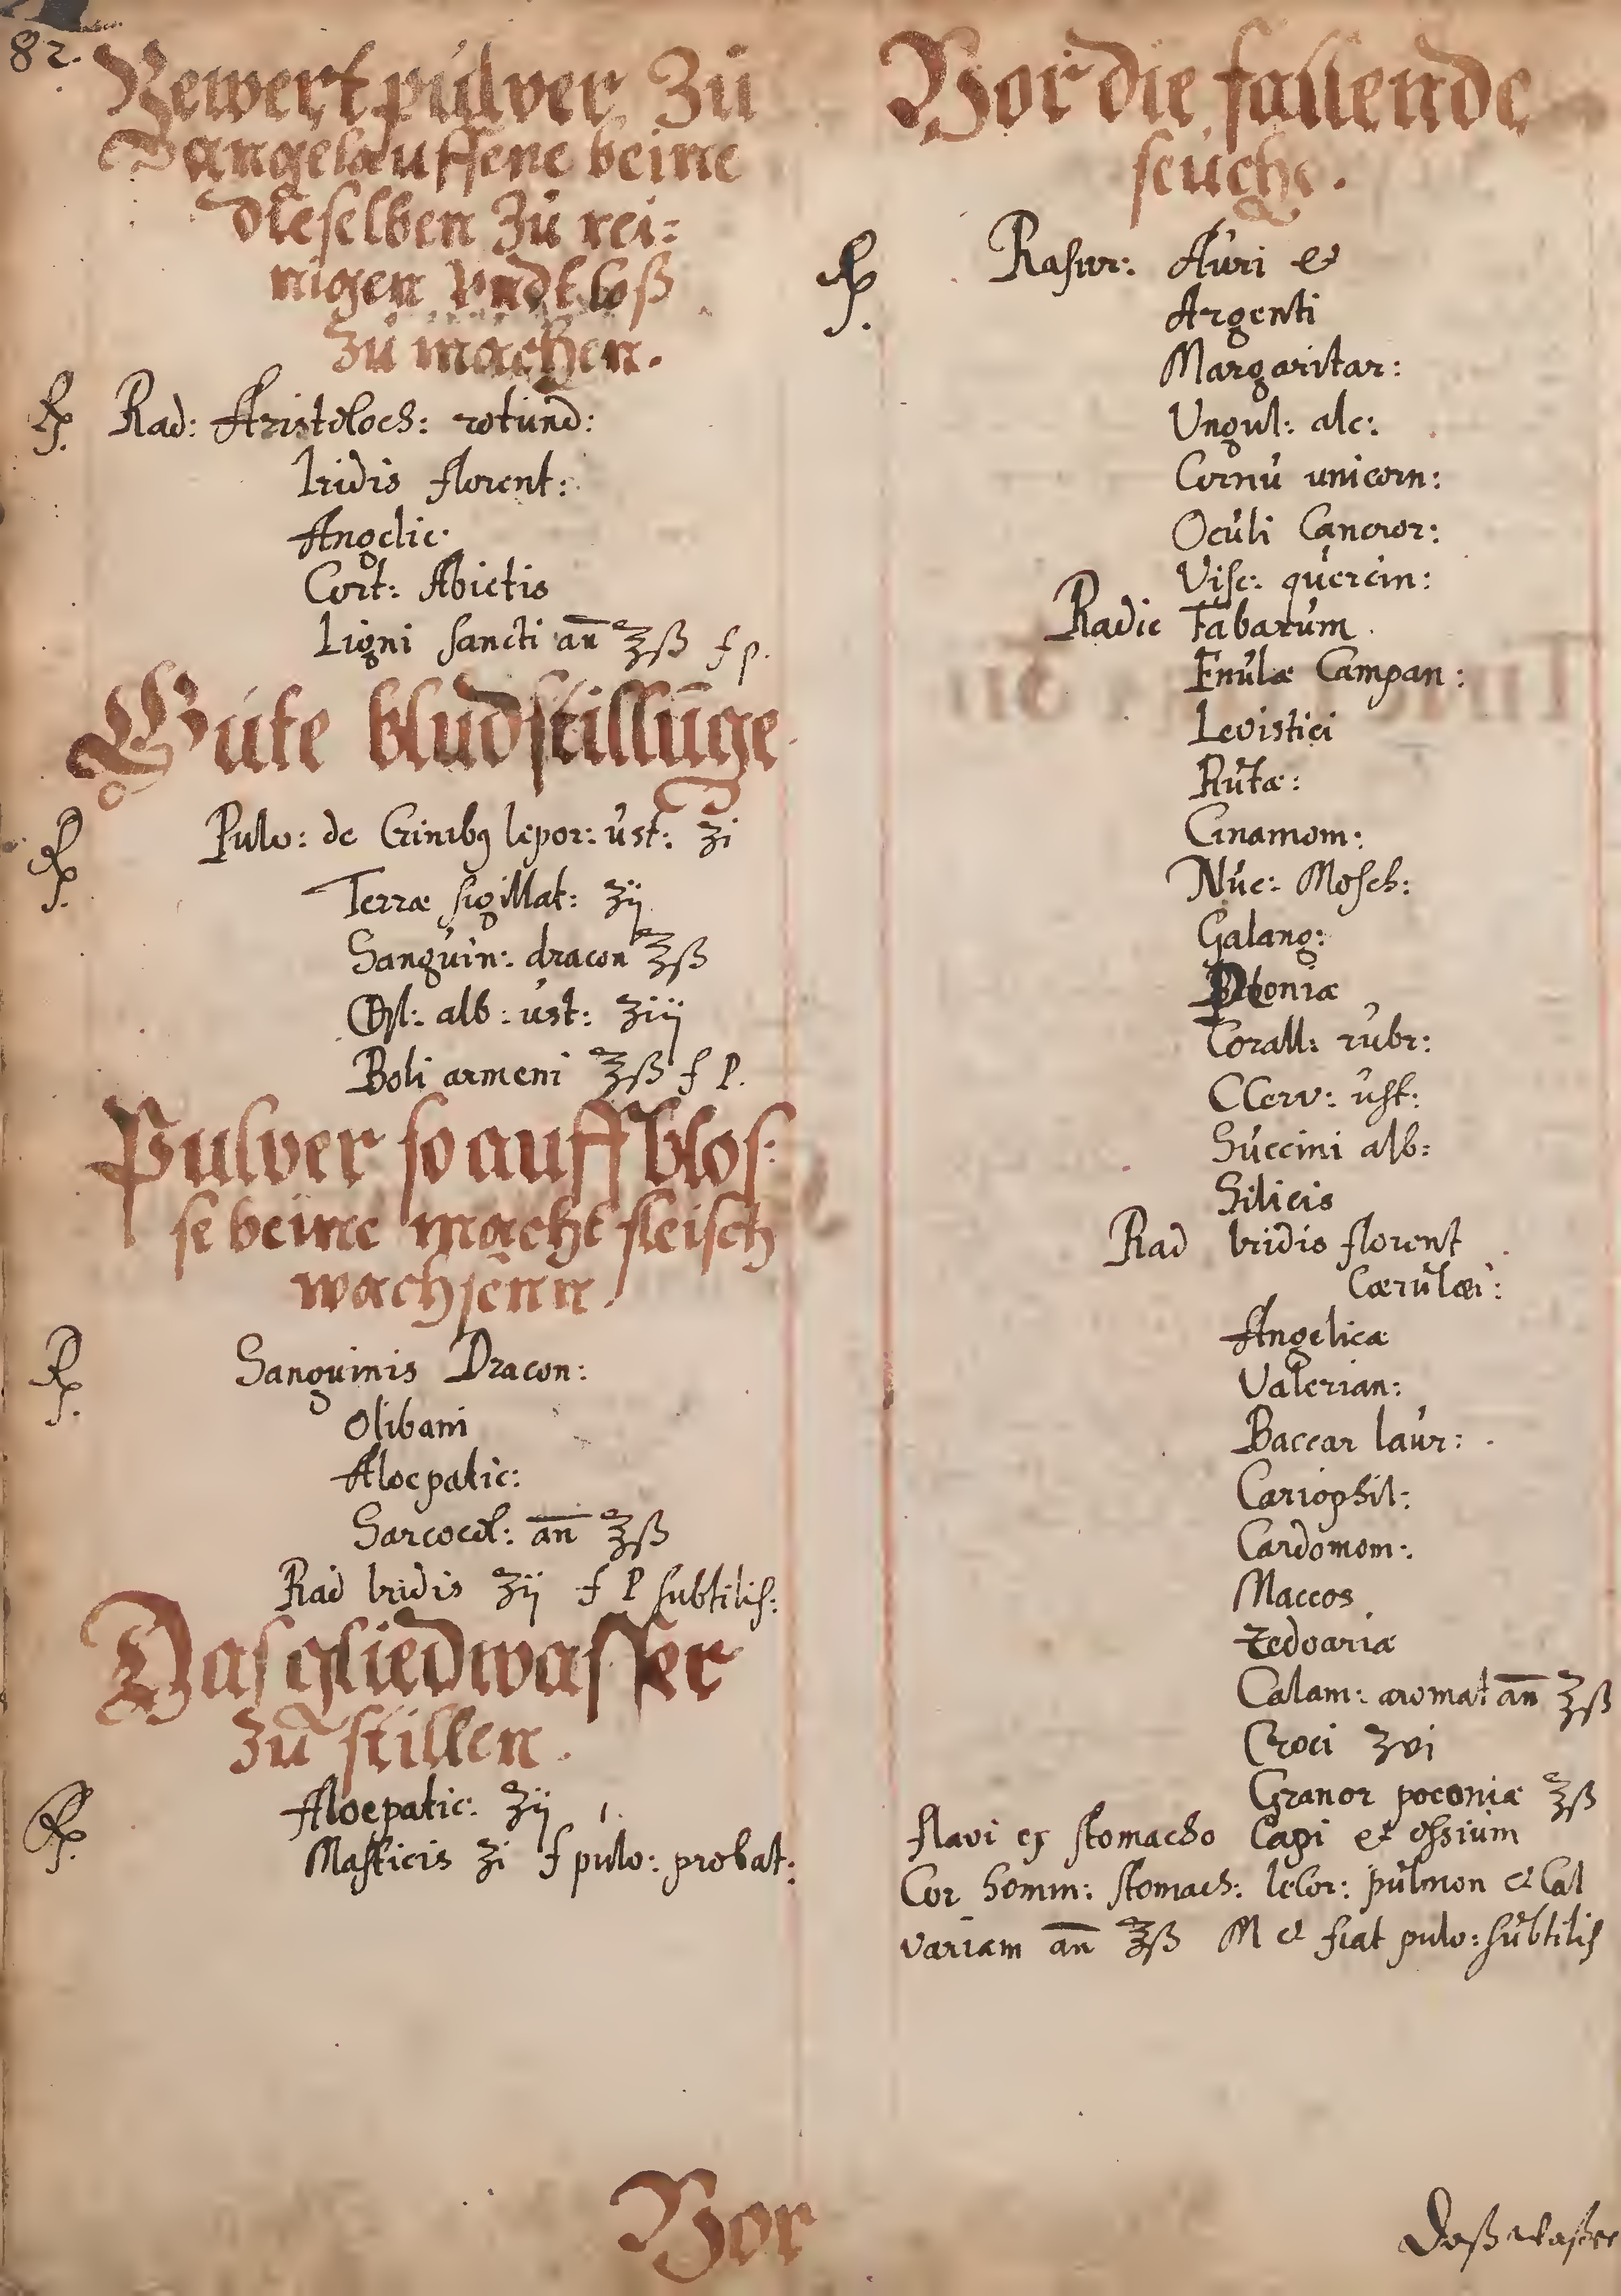 82.
Bewert pulver Zü
angelauffene beine
dieselben Zü rei:
nigen vndt loß
Zü machen.
Rp. Rad: Aristoloch: rotund:
Iridis florent:
Angelic:
Cort: Abietis
Ligni sancti an̄ ℥ß f p.
Güte bludstillu̅ge
Rp. Pulv: de Crinibꝯ lepor: ust: ʒi
Terræ sigillat: ʒij
Sanguin: dracon ℥ß
alb: ust: ʒiij
Boli armeni ℥ß f P.
Pulver so auff blos:
se beine macht fleisch
wachsenn
Rp. Sanguinis Dracon:
Olibani
Aloepatic:
Sarcocol: an̄ ℥ß
Rad Iridis ʒij f P subtilis:
Das gliedwasser
Zü stillen.
Rp. Aloepatic: ʒij
Masticis ʒi f pulv: probat:
Vor
Vor die fallende
seüche.
Rp. Rasur: Auri &
Argenti
Margaritar:
Ungul: alc:
Cornu unicorn:
Oculi Cancror:
Visc: quercin:
Radic Fabarum
Enulæ Campan:
Levistici
Rutæ:
Cinamom:
Nuc: Mosch:
Galang:
Corall: rubr:
CCerv: ust:
Succini alb:
Silicis
Rad Iridis florent
Cærulæi:
Angelicæ
Valerian:
Baccar laur:
Cariophil:
Cardomom:
Macces
Zedoariæ
Calam: aromat an̄ ℥ß
Croci ʒvi
Granor poeoniæ ℥ß
flavi ex stomacho Capi et ossium
Cor homm: stomach: lecor: pulmon et Cal
variam an̄ ℥ß M et fiat pulv: subtilis
Daß waßer